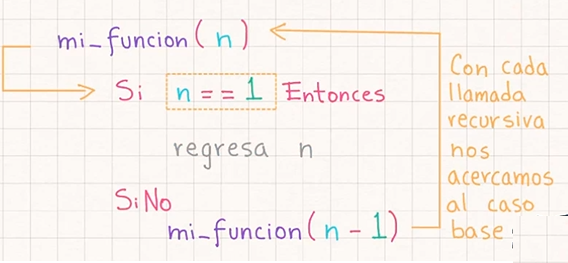 mi_funcion(n)
Si n == 1 Entonces
regresa n
SiNo
mi_funcion(n - 1)
Con cada
llamada
recursiva
nos
acercamos
al caso
base